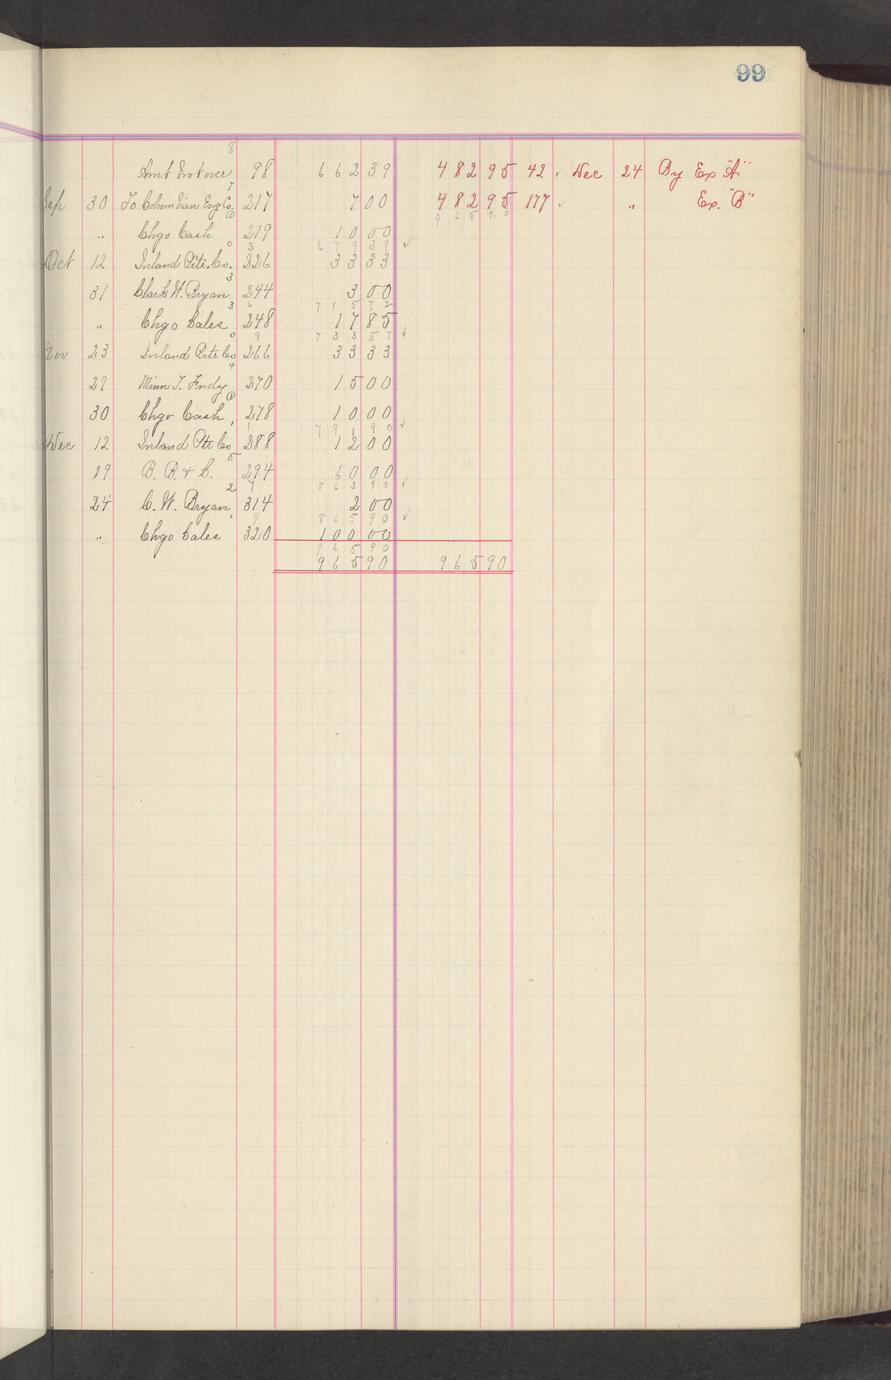 99
8
Amt Brot over 98 662 39 482 95 42 ✓ Dec 24 By Ex "A"
7
Sep 30 To Columbian Eng Co. 217 7 00 482 95 177 ✓ " Ex. "B"
965 90
" Chgo Cash 219 10 00
0 3 679 39 ✓
Oct 12 Inland Ptg. Co. 226 33 33
3
31 Clark W. Bryan 244 3 00
3 6 715 72
" Chgo Sales 248 17 85
0 9 733 57 ✓
Nov 23 Inland Ptg Co 266 33 33
4
29 Minn T. Fndy 270 15 00
30 Chgo Cash, 278 10 00
1 791 90 ✓
Dec 12 Inland Ptg Co 288 12 00
5
19 B. B. & C. 294 60 00
2 7 863 90 ✓
24 C. W. Bryan, 314 2 00
9 865 90 ✓
" Chgo Sales 320 100 00
965 90
965 90 965 90